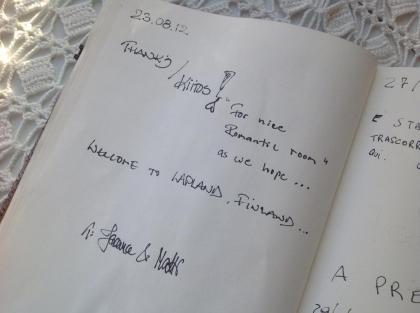 23.08.12
THANKS / KIITOS!
"For nice
Romantic room"
as we hope...
WELCOME TO LAPLAND, FINLAND...
27/
E STA
TRASCORR
QUI.
A PRE